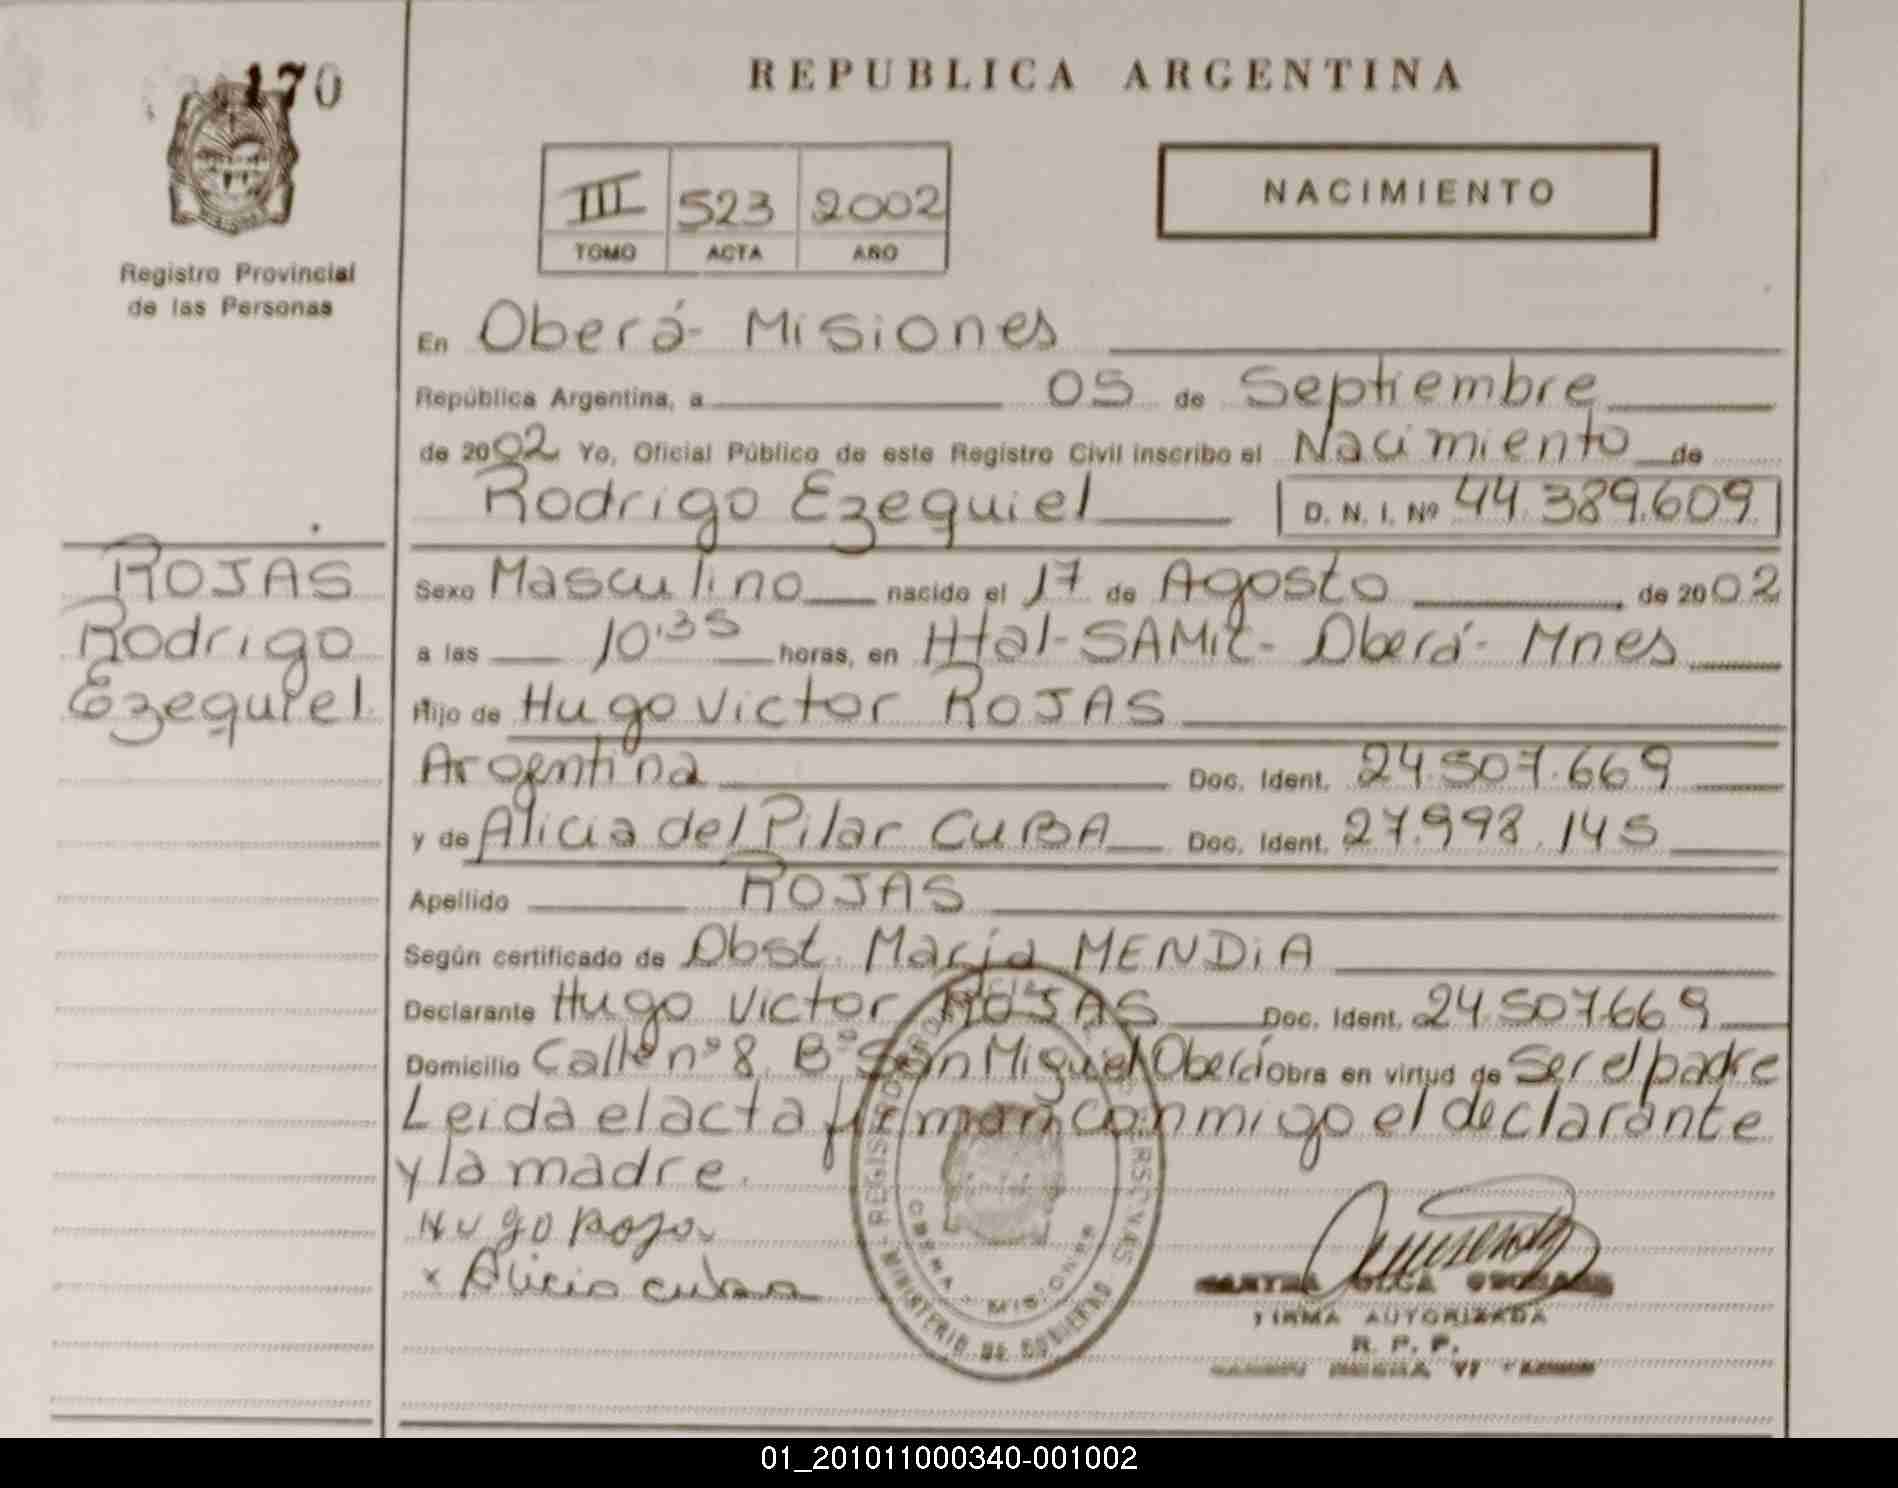 170
REPUBLICA ARGENTINA
III 523 2002
TOMO ACTA AÑO
NACIMIENTO
Registro Provincial
de las Personas
En Oberá - Misiones
República Argentina, a 05 de Septiembre
de 2002 Yo, Oficial Público de este Registro Civil inscribo el Nacimiento de
Rodrigo Ezequiel D. N. I. Nº 44.389.609
ROJAS
Rodrigo
Ezequiel
Sexo Masculino nacido el 17 de Agosto de 2002
a las 10:35 horas, en Htal - SAMIC - Oberá - Mnes
Hijo de Hugo Victor ROJAS
Argentina Doc. Ident. 24.507.669
y de Alicia del Pilar CUBA Doc. Ident. 27.998.145
Apellido ROJAS
Según certificado de Obst. María MENDiA
Declarante Hugo Victor ROJAS Doc. Ident. 24.507.669
Domicilio Calle nº 8 Bº San Miguel Oberá Obra en virtud de Ser el padre
Leida el acta firman conmigo el declarante
y la madre.
Hugo Rojas
x Alicia cuba
REGISTRO PROVINCIAL DE LAS PERSONAS
OBERA - MISIONES
MINISTERIO DE GOBIERNO
OLGA
FIRMA AUTORIZADA
R. P. P.
01_201011000340-001002